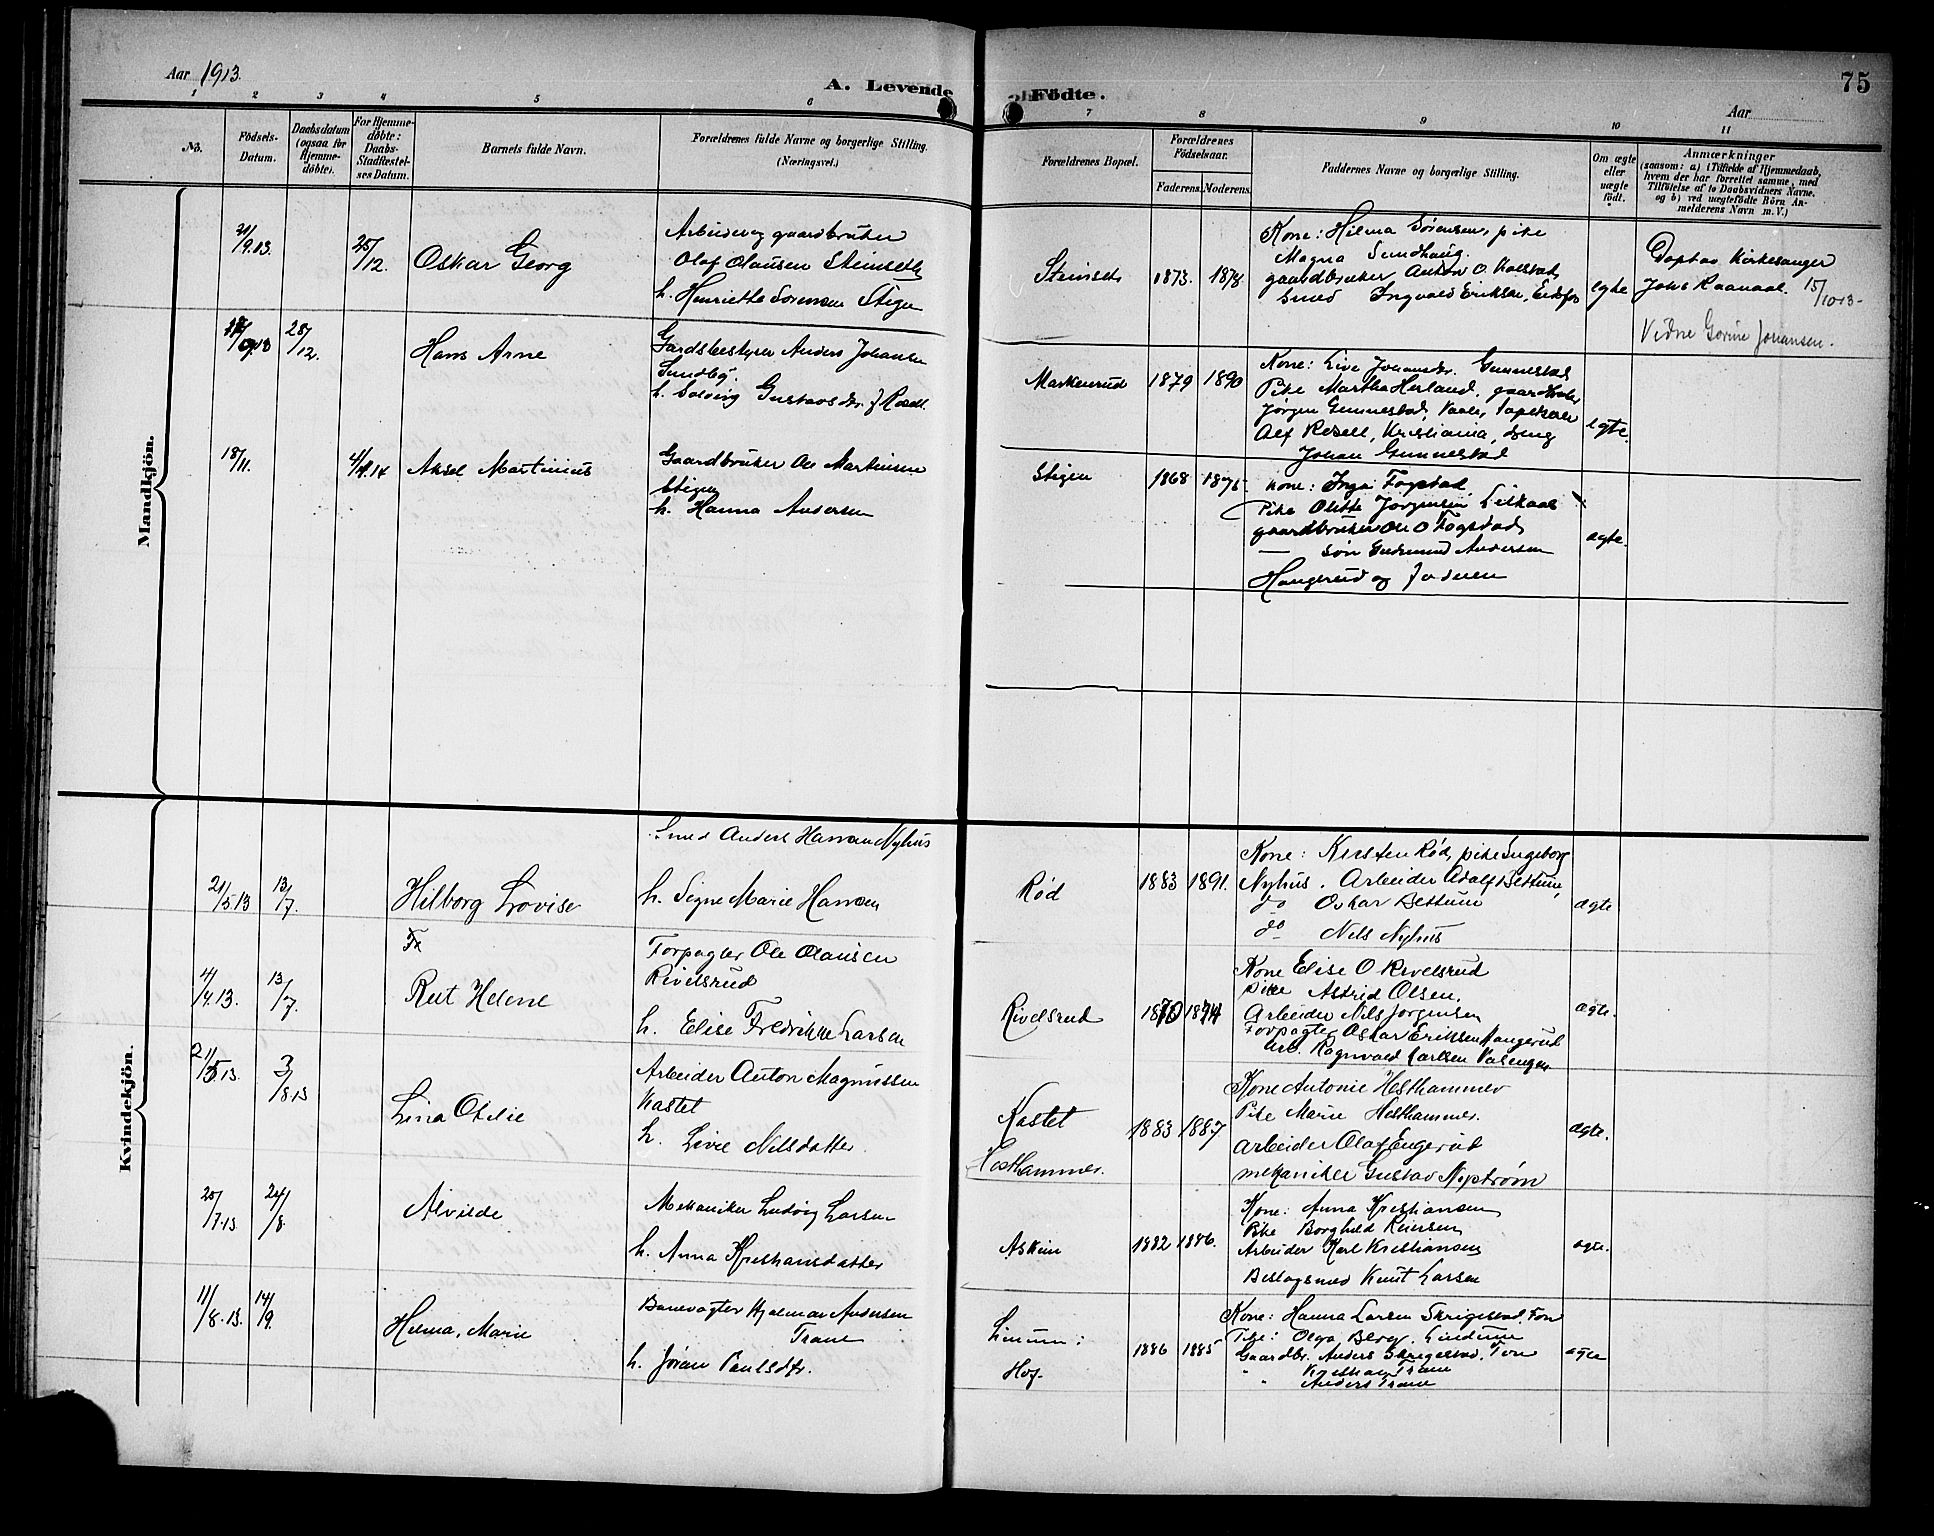 Aar 1913.
A. Levende Fødte.
Aar
75
1 2 3 4 5 6 7 8 9 10 11
No.
Fødsels-Datum.
Daabsdatum (ogsaa for Hjemme-døbte).
For Hjemme-døbte: Daabs-Stadfæstel-ses Datum.
Barnets fulde Navn.
Forældrenes fulde Navne og borgerlige Stilling. (Næringsvei.)
Forældrenes Bopæl.
Forældrenes Fødselsaar.
Faderens. Moderens.
Faddernes Navne og borgerlige Stilling.
Om ægte eller uægte født.
Anmærkninger
(saasom: a) i Tilfælde af Hjemmedaab, hvem der har forrettet samme, med Tilføielse af to Daabsvidners Navne. og b) ved uægtefødte Børn An-melderens Navn m. V.)
Mandkjön.
21/9.13.
25/12.
Oskar Georg
Arbeider og gaardbruker
Olaf Olausen Steinseth
h. Henriette Sorensen Stigen
Steinset
1873. 1878.
Kone: Hilma Sørensen, pike
Magna Sundhaug.
gaardbruker Anton O. Kolstad,
Smed Ingvald Eriksen, Eidsfos
egte
Døpt av Kirkesanger
Johs Raanaas. 15/10 13-
Vidne Gorine Johansen.
28/12.
Hans Arne
Gardsbestyrer Anders Johansen
Sundby.
h. Solveig Gustavsdr. f. Rosell.
Markerud
1879 1890
Kone: Live Johansdr. Gunnestad
Pike Martha Herland, gaardbruker
Jørgen Gunnestad, Vaale, Tapetserer
Alf Rosell, Kristiania, dreng
Johan Gunnestad
egte.
18/11.
4/1.14
Aksel Martinius
Gaardbruker Ole Martinsen
Stigen
h. Hanna Andersen
Stigen
1868 1875
Kone: Inga Fogstad
Pike Olette Jørgensen Lilkaas
gaardbruker Ole O Fogstad,
— søn Gudmund Andersen
Haugerud og faderen
ægte.
Kvindekjön.
21/5 13
13/7.
Hilborg Lovise
Smed Anders Hansen Nyhus
h. Signe Marie Hansen
Rød
1883 1891.
Kone: Kirsten Rød, pike Ingeborg
Nyhus. Arbeider Adolf Bettum,
do Oskar Bettum
do Nils Nyhus
ægte
4/4.13.
13/7.
Rut Helene
Forpagter Ole Olausen
Rivelsrud
h. Elise Fredrikke Larsen
Rivelsrud
1870 1874
Kone Elise O Rivelsrud
pike Astrid Olsen.
Arbeider Nils Jørgensen
Forpagter Oskar Eriksen Haugerud
Arb. Ragnvald Karlsen Valengen
ægte.
21/5 13.
3/8 13
Lina Otelie
Arbeider Anton Magnussen
Kastet
h. Livie Nilsdatter.
Kastet
Hesthammer.
1883 1887.
Kone Antonie Hesthammer
Pike Marie Hesthammer.
Arbeider Olaf Engerud
mekaniker Gustav Nystrøm
ægte.
25/7.13
24/8.
Alvilde
Mekaniker Ludvig Larsen
h. Anna Kristiansdatter
Askim
1882 1886.
Kone: Anna Kristiansen
Pike Borghild Reiersen
Arbeider Karl Kristiansen
Beslagsmed Knut Larsen
ægte.
11/8.13.
14/9.
Helma, Marie
Banevogter Hjalmar Andersen
Trane
h. Jøran Paulsdtr.
Linum:
Hof.
1886 1885
Kone: Hanna Larsen Skrigestad, Ton
Pike: Olga Berg. Lindum
Gaardbr. Anders Skrigestad, Ton
" Kristian Trane
" Anders Trane
ægte